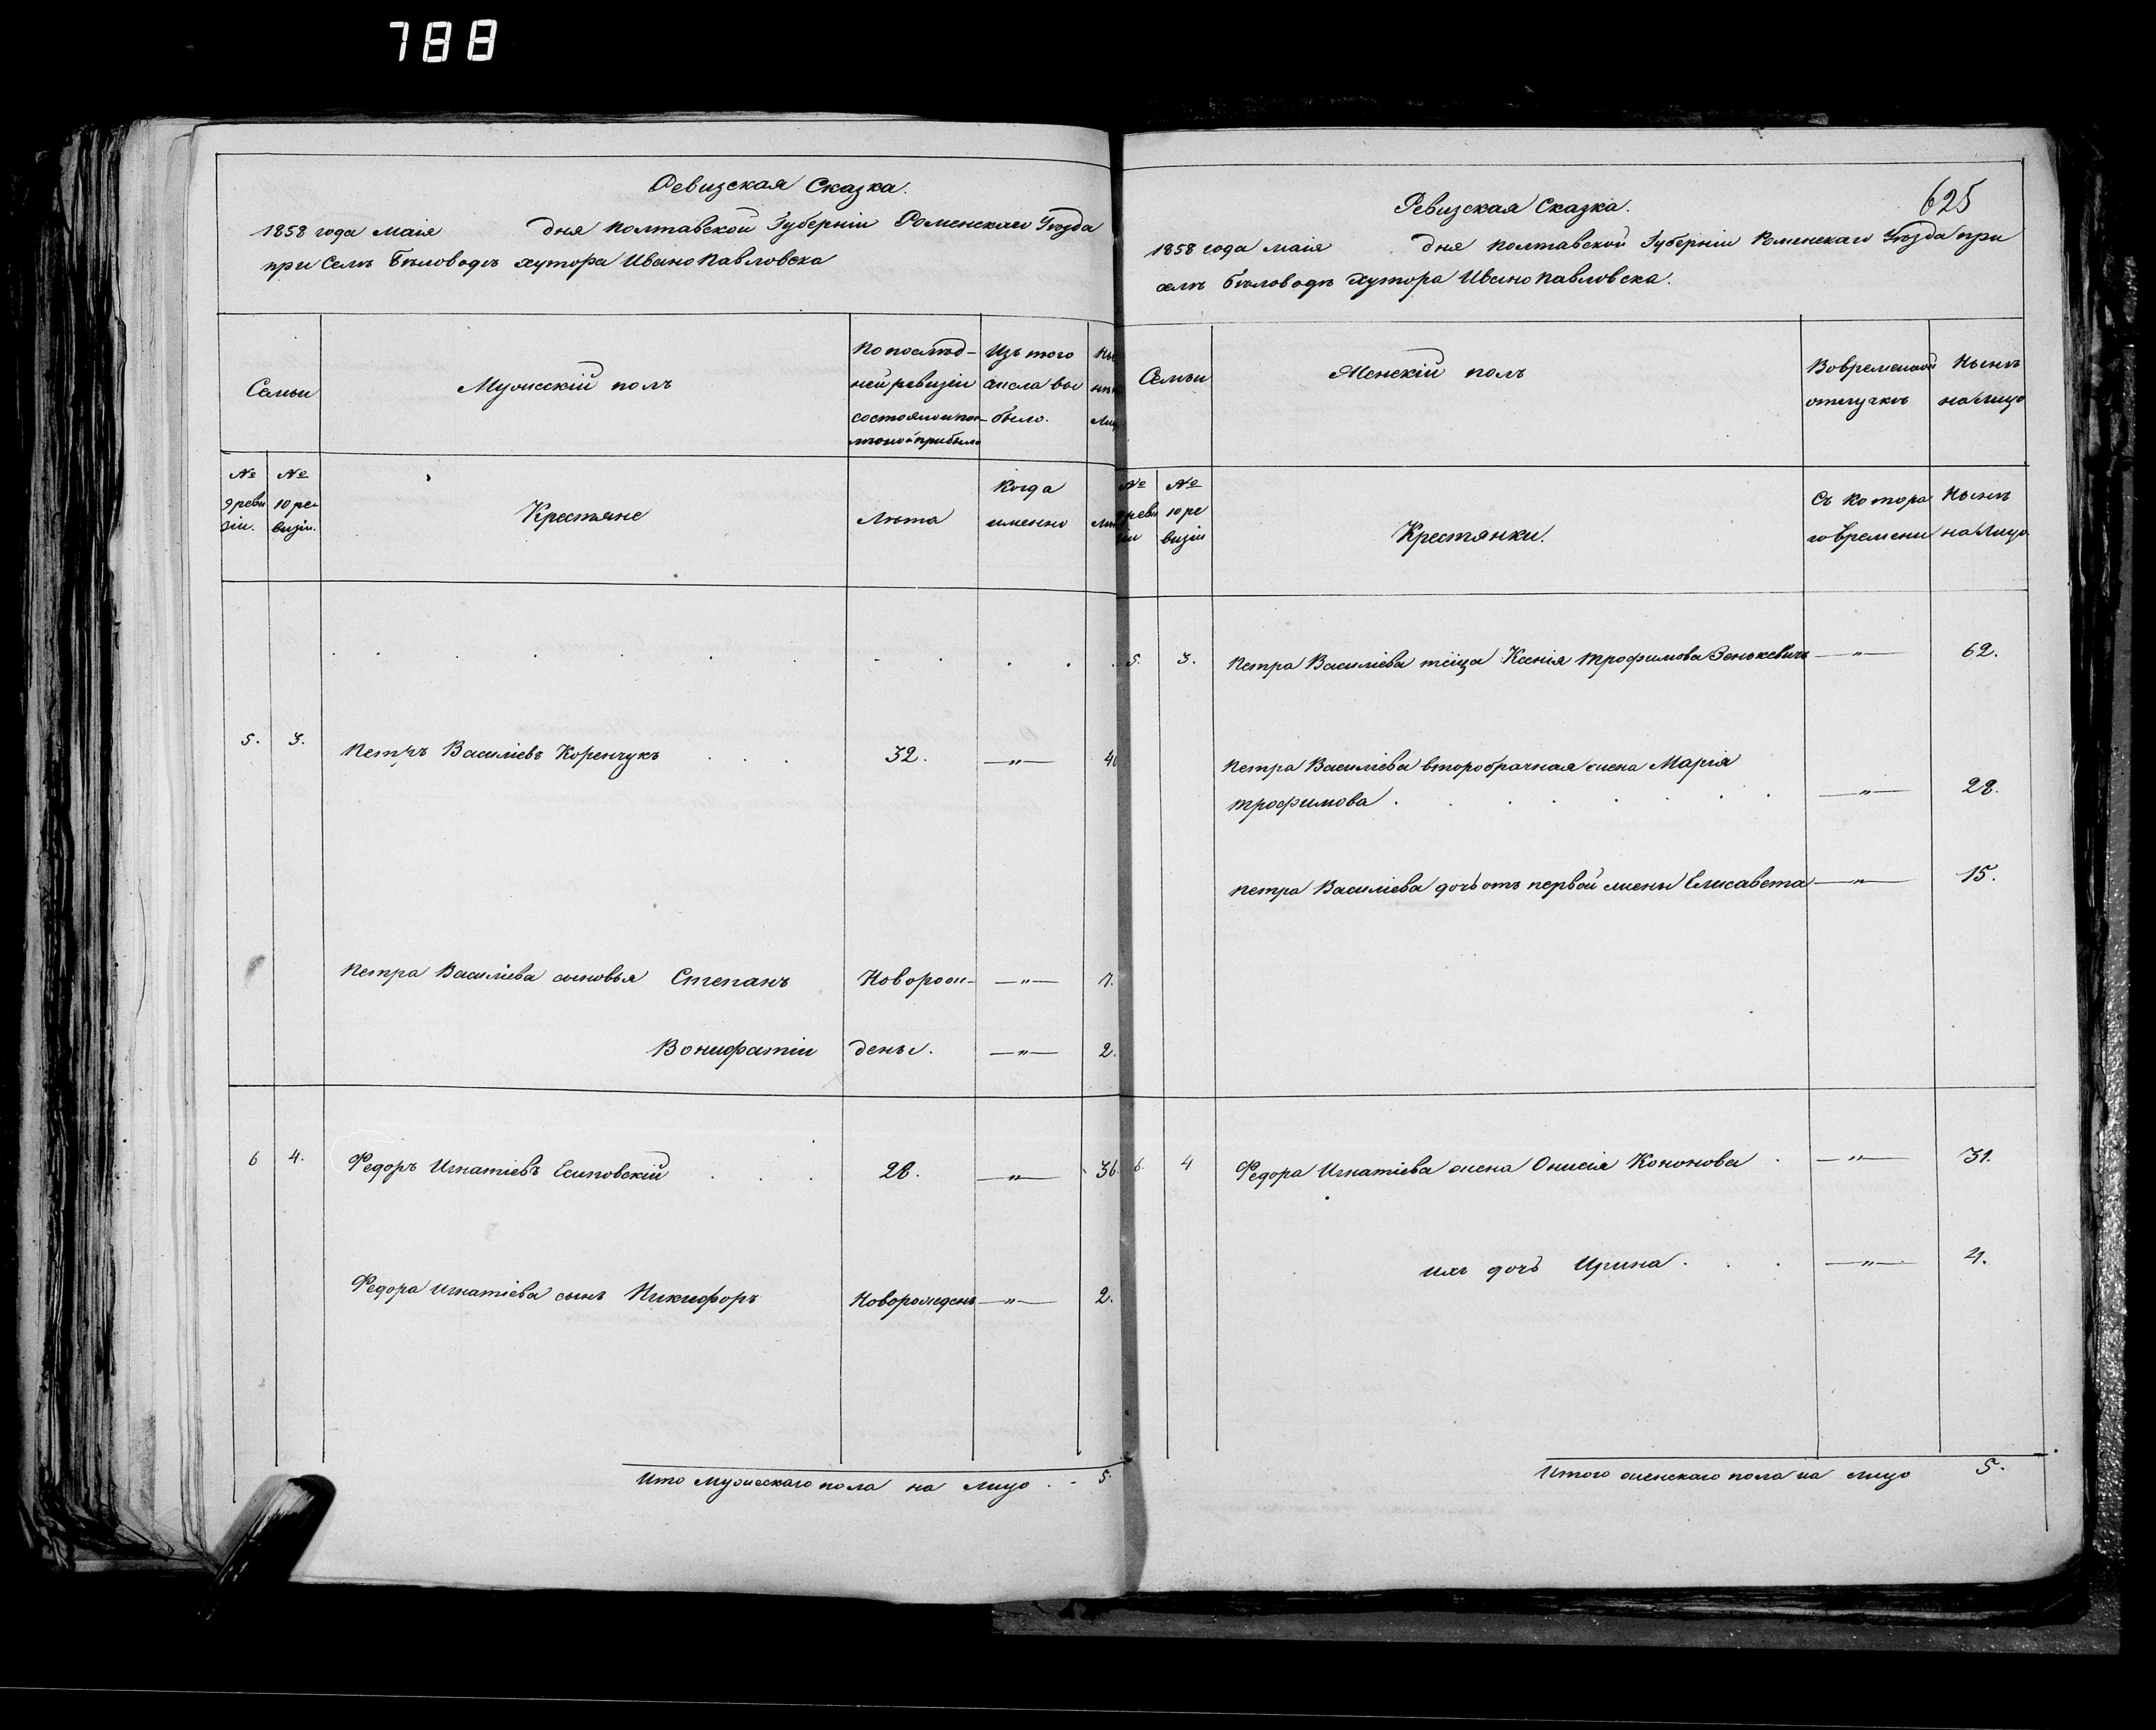 788
Ревизская Сказка.
1858 года маія дня Полтавской Губерніи Роменскаго Уѣзда
при Селѣ Бѣловодѣ хутора Ивано Павловска
Семьи
Мужескій полъ
По послѣд-
ней ревизіи
состояло и по-
слѣ оной прибыло
Изъ того
числа вы
было.
№
9 реви
зіи.
№
10 ре
визіи.
Крестяне
Лѣта
Когда
именно
5. 3. Петръ Василіевъ Коренчукъ . . . 32. —"— 40
Петра Василіева сыновья Степанъ Новорож- —"— 7.
Вонифатіи деные. —"— 2.
6 4. Федоръ Игнатіевъ Есиповскій . . . 28. —"— 36
Федора Игнатіева сынъ Никифоръ Новорожденъ —"— 2.
Ито Мужескаго пола на лицо . - 5
625
Ревизская Сказка.
1858 года маія дня Полтавской Губерніи Роменскаго Уѣзда при
селѣ Бѣловодѣ хутора Ивано Павловска.
Семьи
Женскій полъ
Во временной
отлучкѣ
Нынѣ
на лицо
№
9 реви
зіи
№
10 ре
визіи
Крестянки.
Съ котора
го времени
Нынѣ
на лицо
5. 3. Петра Василіева теща Ксенія Трофимова Зенькевичъ —"— 62.
Петра Василіева второбрачная жена Марія
Трофимова . . . . . . . —"— 28.
Петра Василіева дочь отъ первой жены Елисавета —"— 15.
6. 4 Федора Игнатіева жена Онисія Кононова . —"— 31.
ихъ дочь Ирина . . . —"— 4.
Итого женскаго пола на лицо 5.